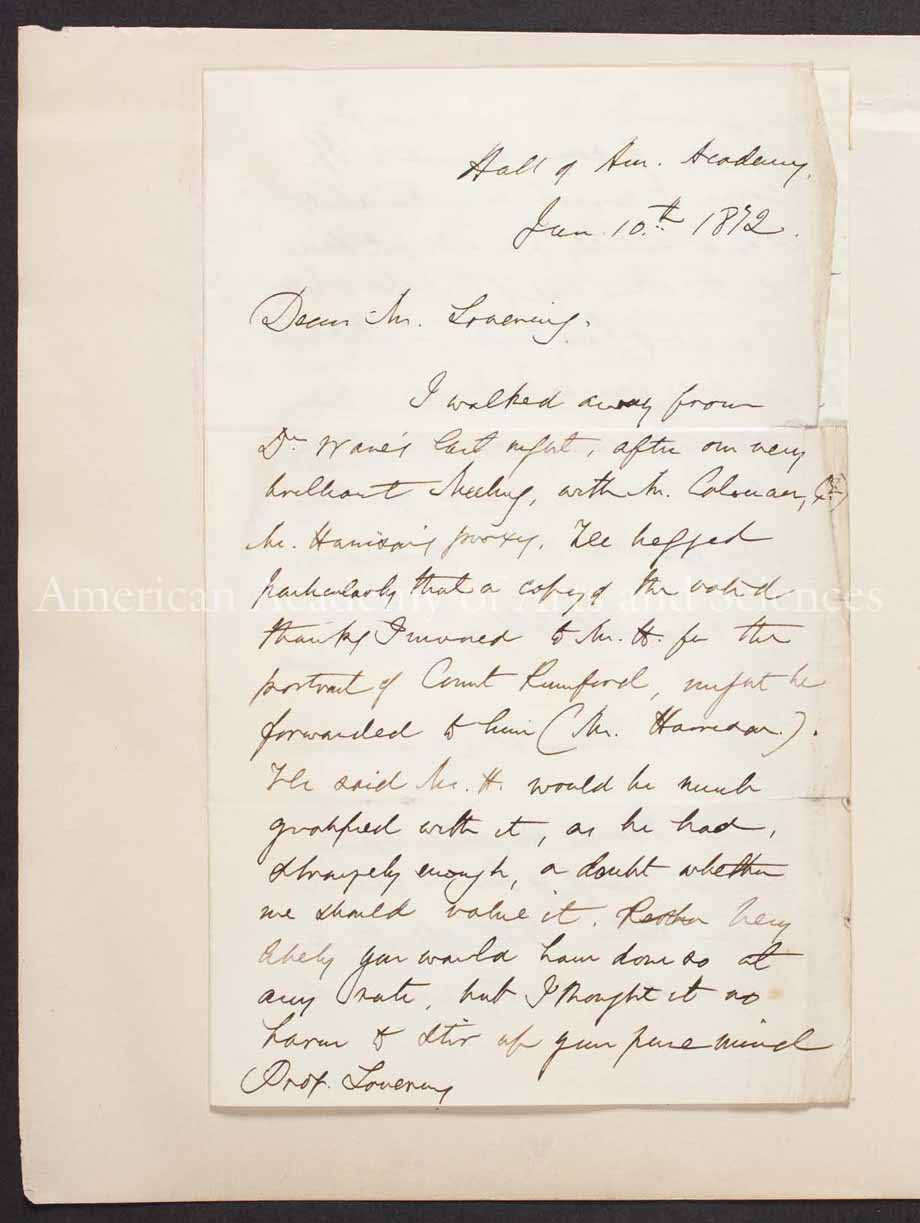 Hall of Am. Academy,
Jan. 10.th 1872.
Dear Mr. Lovering.
I walked away from
Dr. Ware's last night, after our very
brilliant Meeting, with Mr. Colman,
Mr. Harrison's proxy. He begged
particularly that a copy of the vote of
thanks I moved to Mr. H. for the
portrait of Count Rumford, might be
forwarded to him (Mr. Harrison.).
He said Mr. H. would be much
gratified with it, as he had,
strangely enough, a doubt whether
we should value it. Very
likely you would have done so at
any rate, but I thought it no
harm to stir up your pure mind
Prof. Lovering
American Academy of Arts and Sciences